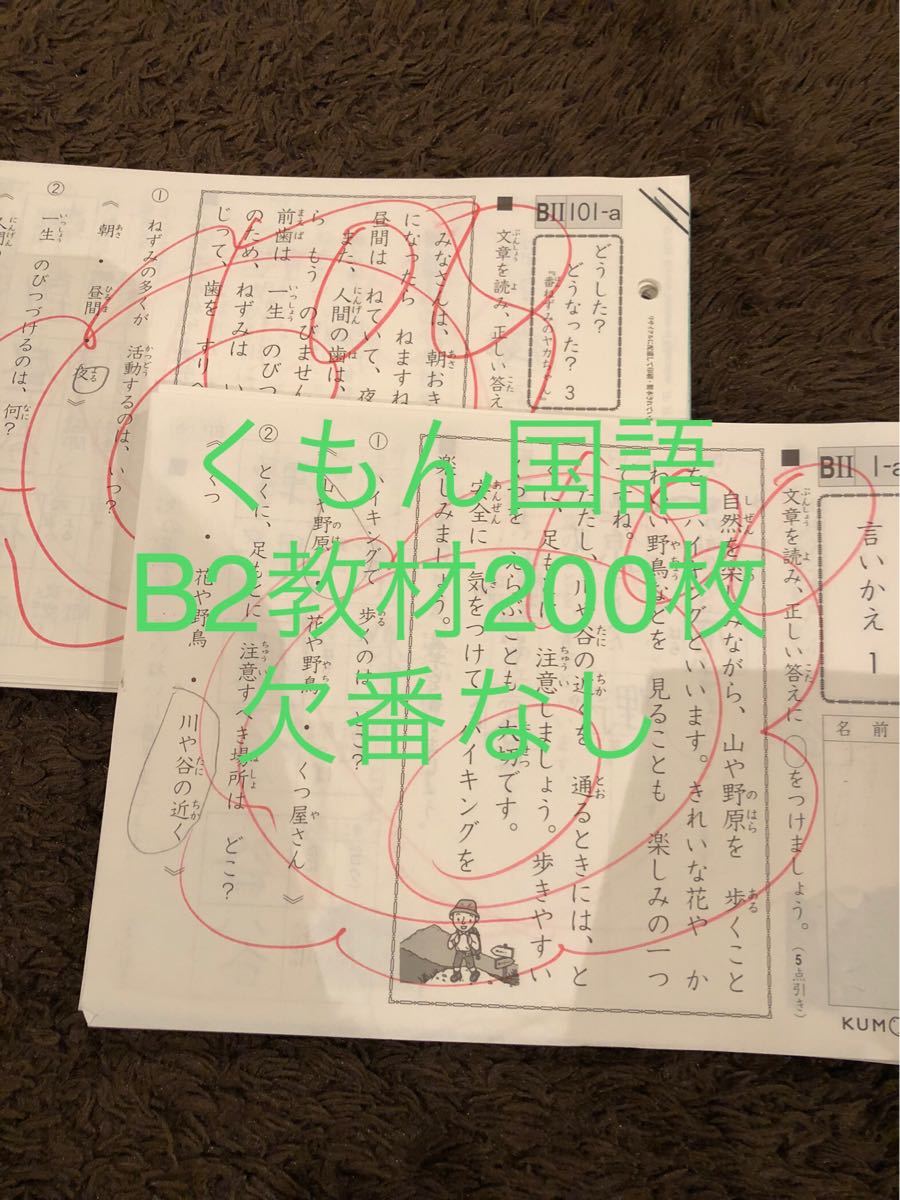 くもん国語
B2教材200枚
欠番なし
BⅡ101-a
どうした?
どうなった? 3
■ 文章を読み、正しい答え
みなさんは、朝おき
になったら ねますね
昼間は ねていて、夜
また、人間の歯は、
ら もう のびません
前歯は 一生 のびつ
のため、ねずみは い
じって、歯を すりへ
① ねずみの多くが 活動するのは、いつ?
《 朝 ・ 昼間 ・ 夜 》
② 一生 のびつづけるのは、何?
BⅡ 1-a
言いかえ 1
名前
■ 文章を読み、正しい答えに ○をつけましょう。(5点引き)
自然を楽しみながら、山や野原を 歩くこと
ハイキングといいます。きれいな花や か
わいい野鳥などを 見ることも 楽しみの一つ
ですね。
ただし、川や谷の近くを 通るときには、と
くに、足もとに 注意しましょう。歩きやすい
くつを えらぶことも 大切です。
安全に 気をつけて ハイキングを
楽しみましょう。
① ハイキングで 歩くのは、どこ?
《 山や野原 ・ 花や野鳥 ・ くつ屋さん 》
② とくに、足もとに 注意すべき場所は どこ?
《 くつ ・ 花や野鳥 ・ 川や谷の近く 》